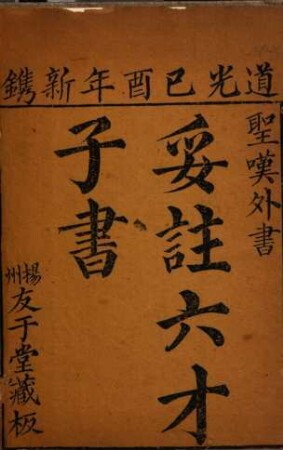 道光己酉年新鐫
聖嘆外書
妥註六才
子書
揚州友于堂藏板